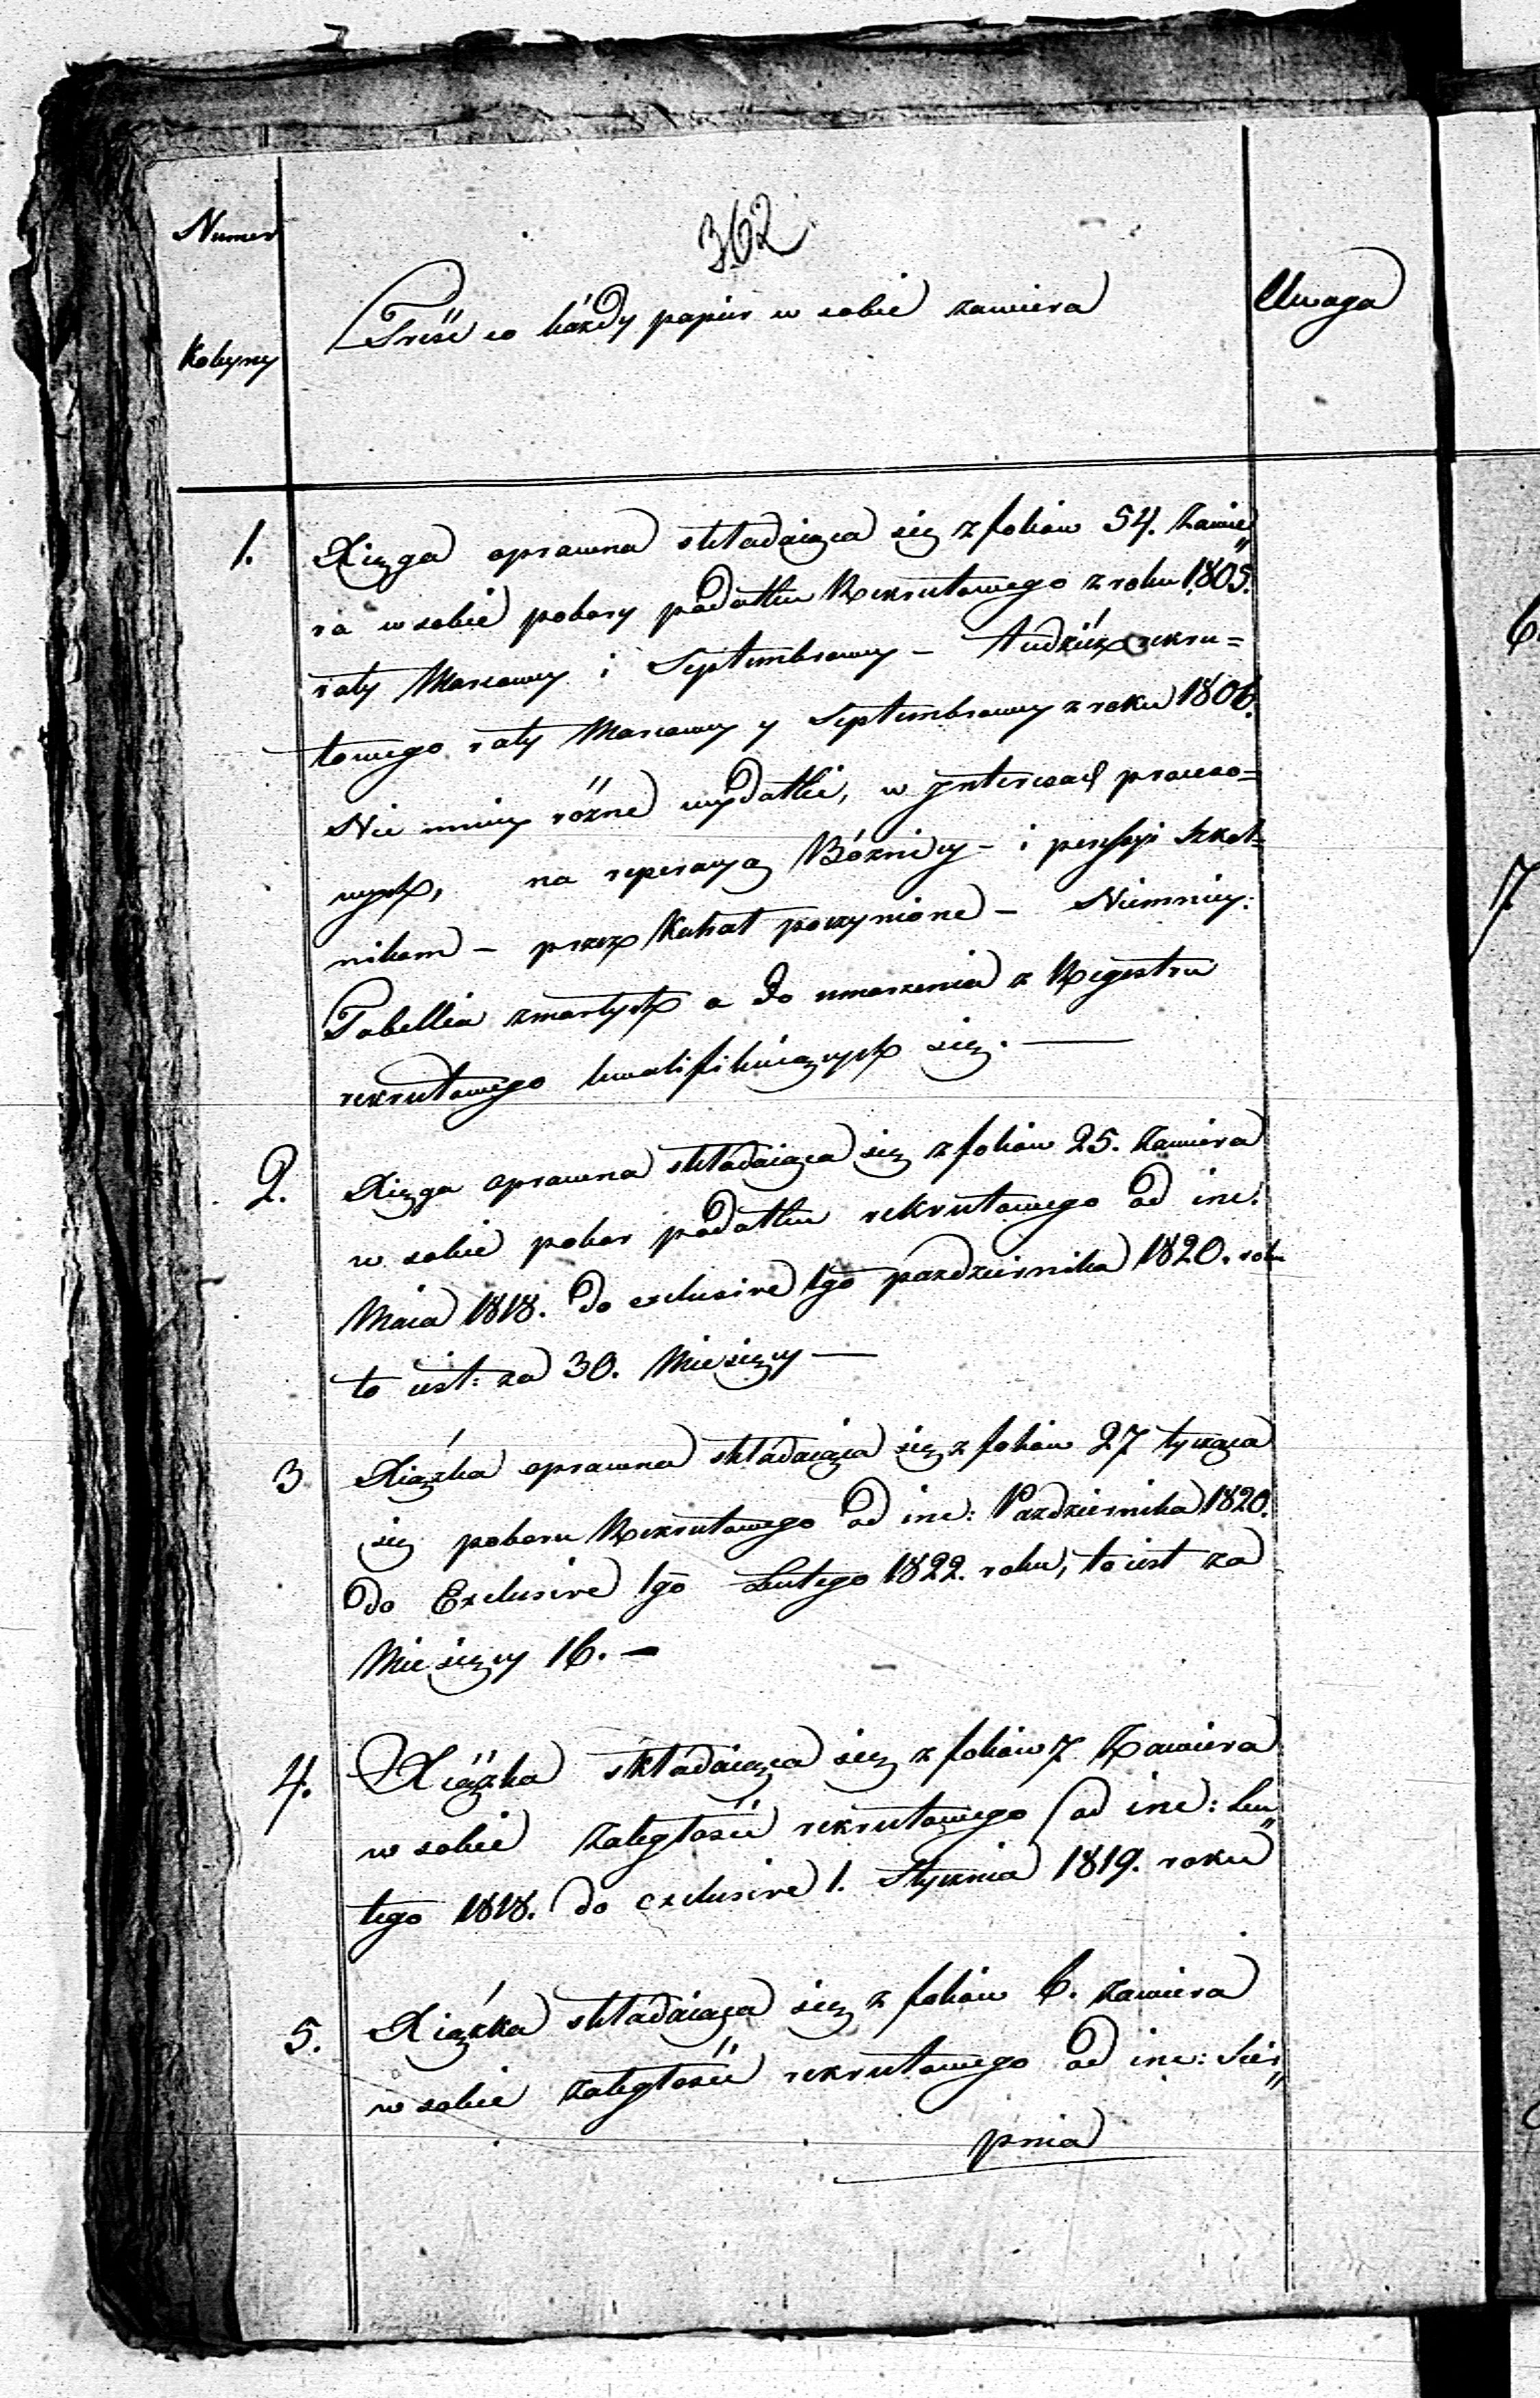 362
Numer
Kolejny
Treść co każdy papier w sobie zawiera
Uwaga
1. Xięga oprawna składaiąca się z foliow 54. Zawie„
ra w sobie pobory podatku Rekrutowego z roku 1805.
raty Marcowey i Septembrowey – Tudzież rekru=
towego raty Marcowey y Septembrowey z roku 1806.
Nie mniey różne wydatki, w Jnteresach proceso=
wych, na reperacyą Bóżnicy – i pensyi Szkol=
nikom – przez Kahał poczynione – Niemniey:
Tabella zmarłych a do umorzenia z Regestru
rekrutowego kwalifikuiących się. —
2. Xięga oprawna składaiąca się z foliow 25. Zawiera
w sobie pobor podatku rekrutowego od inc:
Maia 1818. do exclusive 1go pazdziernika 1820. roku
to iest: za 30. Miesięcy —
3 Xiążka oprawna składaiąca się z foliow 27 tycząca
się poboru Rekrutowego od inc: Pazdziernika 1820.
do Exclusive 1go Lutego 1822. roku, to iest za
Miesięcy 16. –
4. Xiążka składaiąca się z foliow 7 Zawiera
w sobie zaległości rekrutowego od inc: Lu„
tego 1818. do exclusive 1. Stycznia 1819. roku
5. Xiążka składaiąca się z foliow 6. zawiera
w sobie zaległości rekrutowego od inc: Sier„
pnia